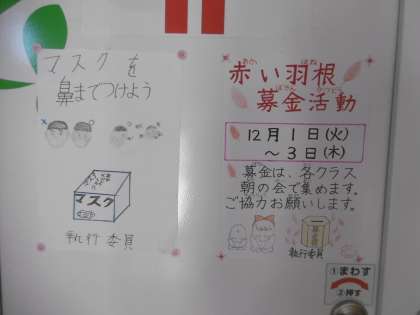 マスクを
鼻までつけよう
マスク
執行委員
赤い羽根
あか はね
募金活動
ぼきん かつどう
12月1日(火)
～3日(木)
募金は、各クラス
朝の会で集めます。
ご協力お願いします。
募金箱
執行委員
①まわす
②押す